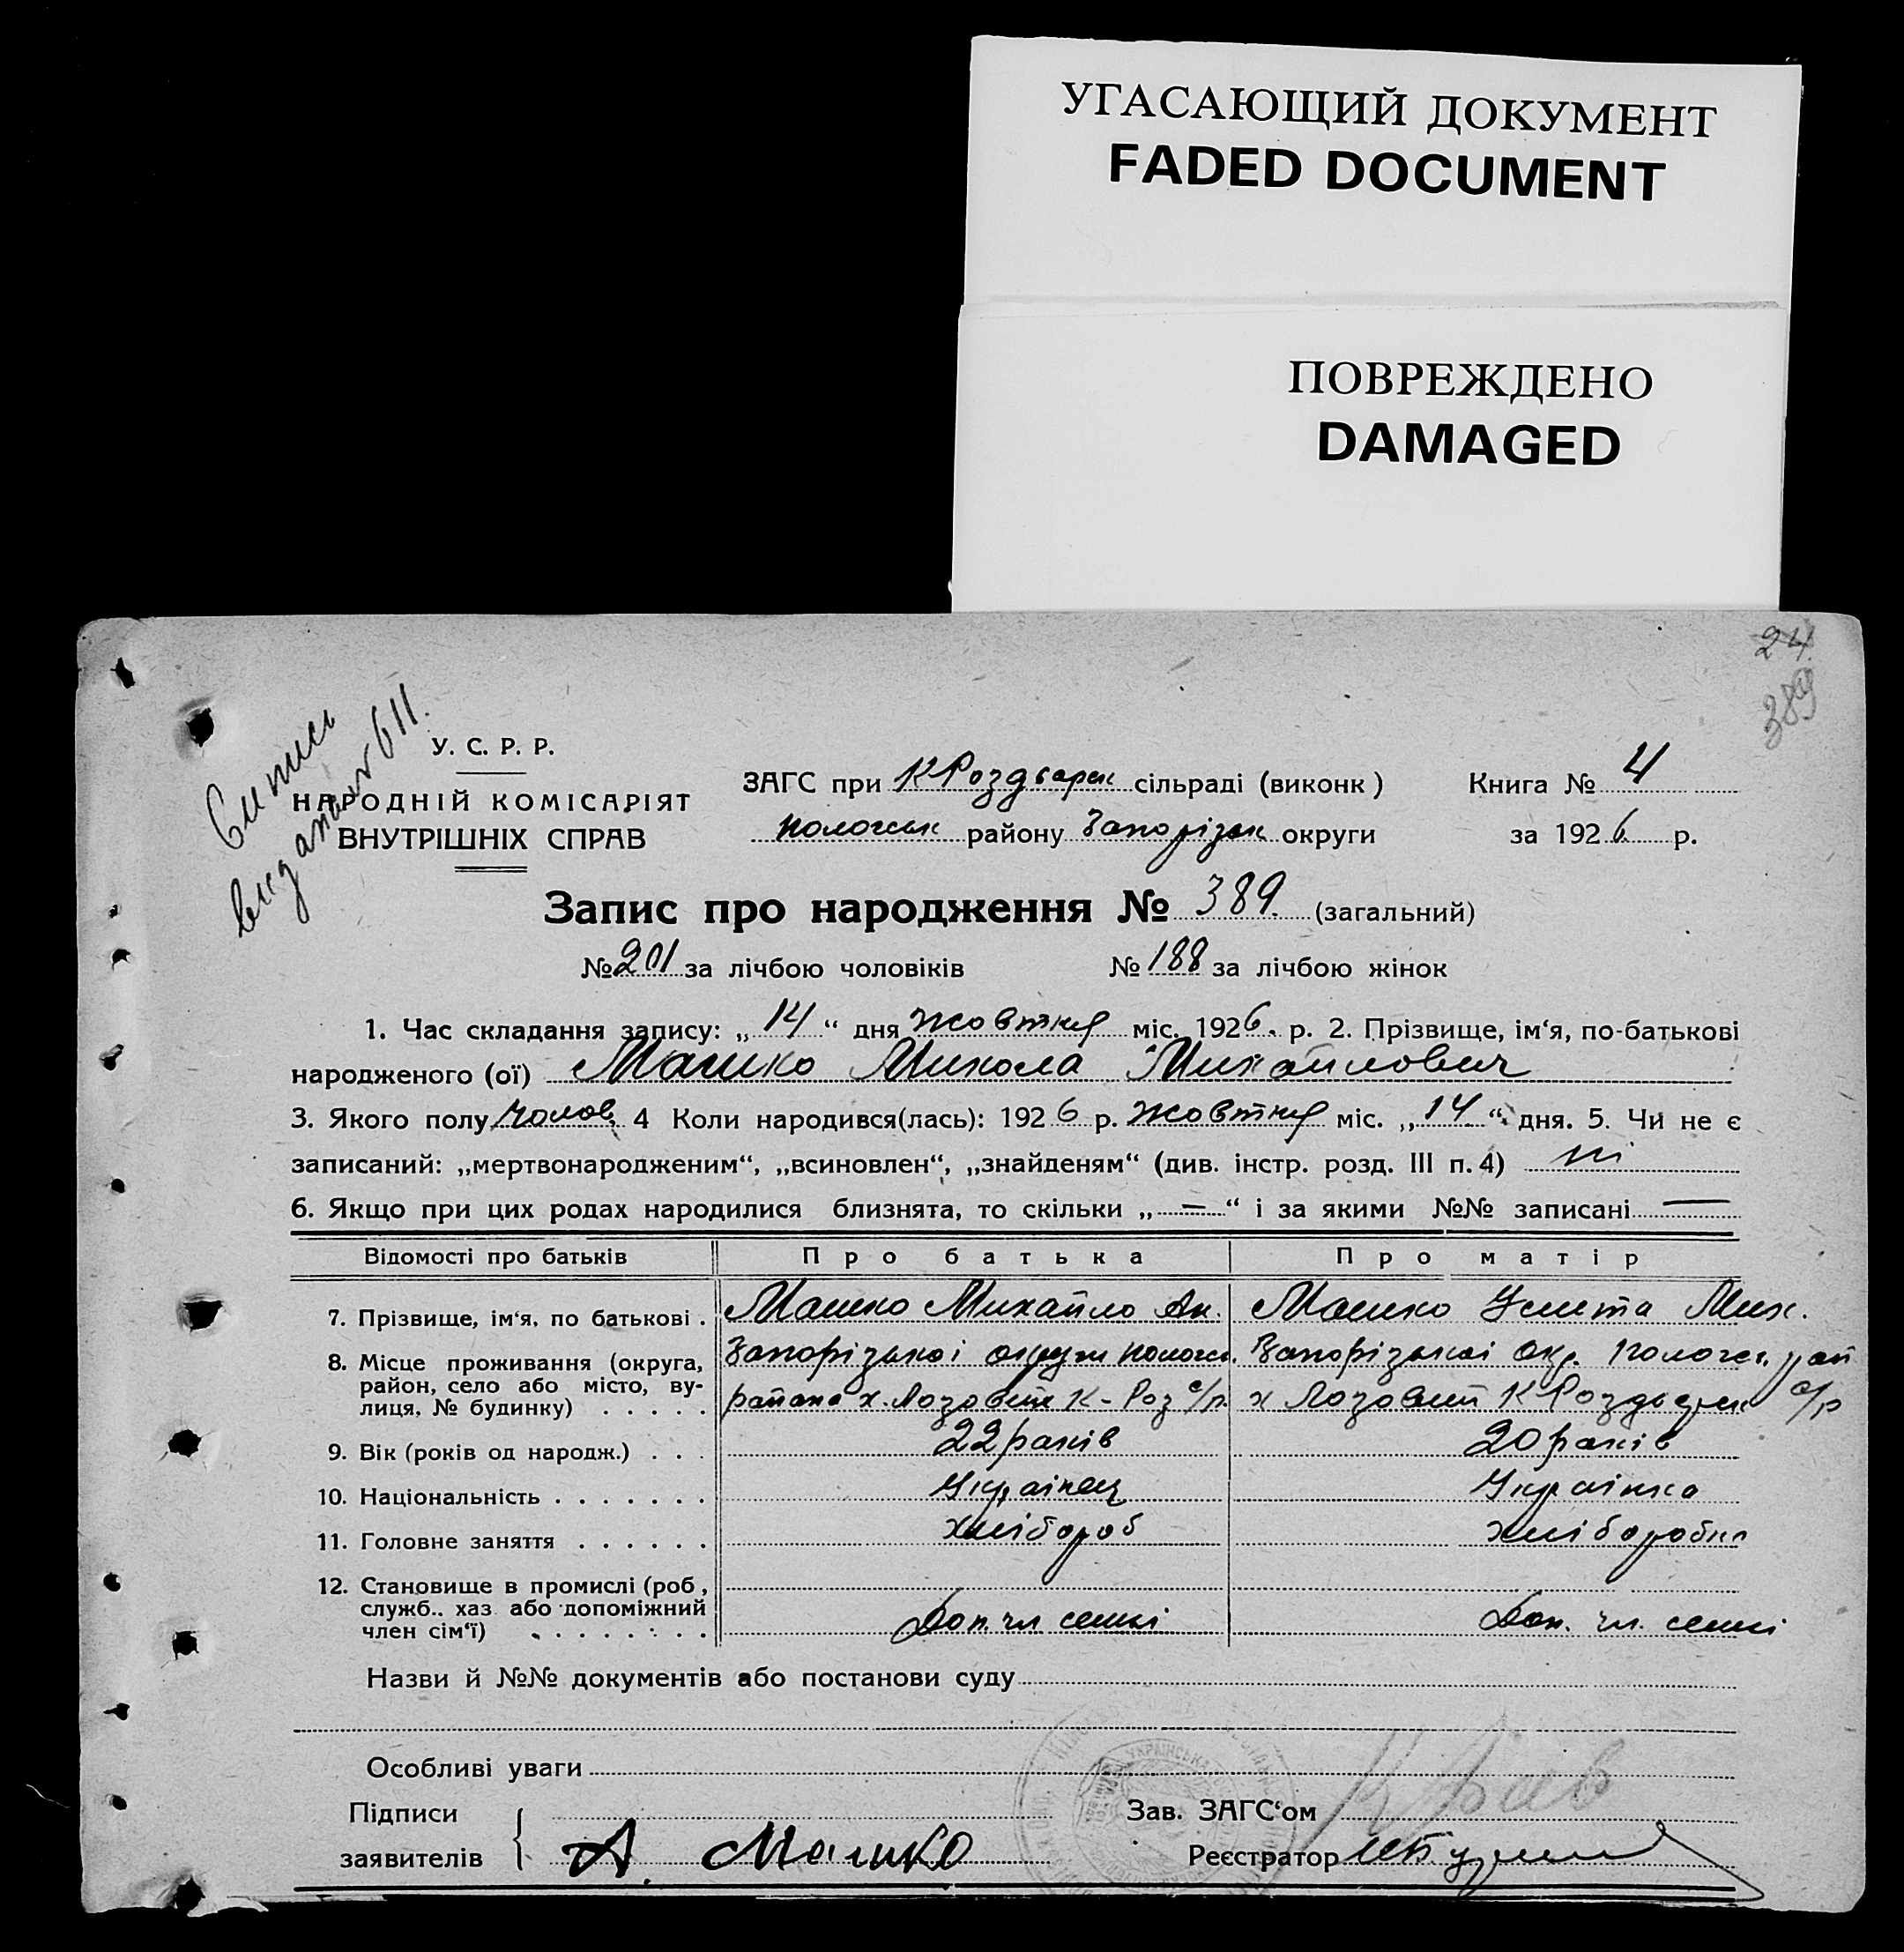 УГАСАЮЩИЙ ДОКУМЕНТ
FADED DOCUMENT
ПОВРЕЖДЕНО
DAMAGED
24.
389
У. С. Р. Р.
НАРОДНІЙ КОМІСАРІЯТ
ВНУТРІШНІХ СПРАВ
ЗАГС при К Роздорск сільраді (виконк) Книга № 4
Пологськ району Запорізьк округи за 1926 р.
Запис про народження № 389. (загальний)
№ 201 за лічбою чоловіків № 188 за лічбою жінок
1. Час складання запису: „14“ дня жовтня міс. 1926. р. 2. Прізвище, ім‘я, по-батькові
народженого (ої) Машко Микола Михайлович
3. Якого полу чолов. 4 Коли народився(лась): 1926 р. жовтня міс. „14“ дня. 5. Чи не є
записаний: „мертвонародженим“, „всиновлен“, „знайденям“ (див. інстр. розд. III п. 4) ні
6. Якщо при цих родах народилися близнята, то скільки „—“ і за якими №№ записані —
Відомості про батьків Про батька Про матір
7. Прізвище, ім‘я, по батькові . Машко Михайло Ан. Машко Улита Мих.
8. Місце проживання (округа, район, село або місто, вулиця, № будинку) . . . . . Запорізької округи Пологськ. Запорізької Окр. Пологск. рай
района х. Лозовий К-Роз с/р. х Лозовий К Роздорск с/р
9. Вік (років од народж.) . . . 22 років 20 років
10. Національність . . . . . . . Українець Українка
11. Головне заняття . . . . . . хлібороб хліборобка
12. Становище в промислі (роб, служб.. хаз. або допоміжний
член сім‘ї) . . . . . . . . Доп. чл семьі Доп. чл. семьі
Назви й №№ документів або постанови суду
Особливі уваги
Підписи Зав. ЗАГС‘ом
заявителів А. Машко Реєстратор